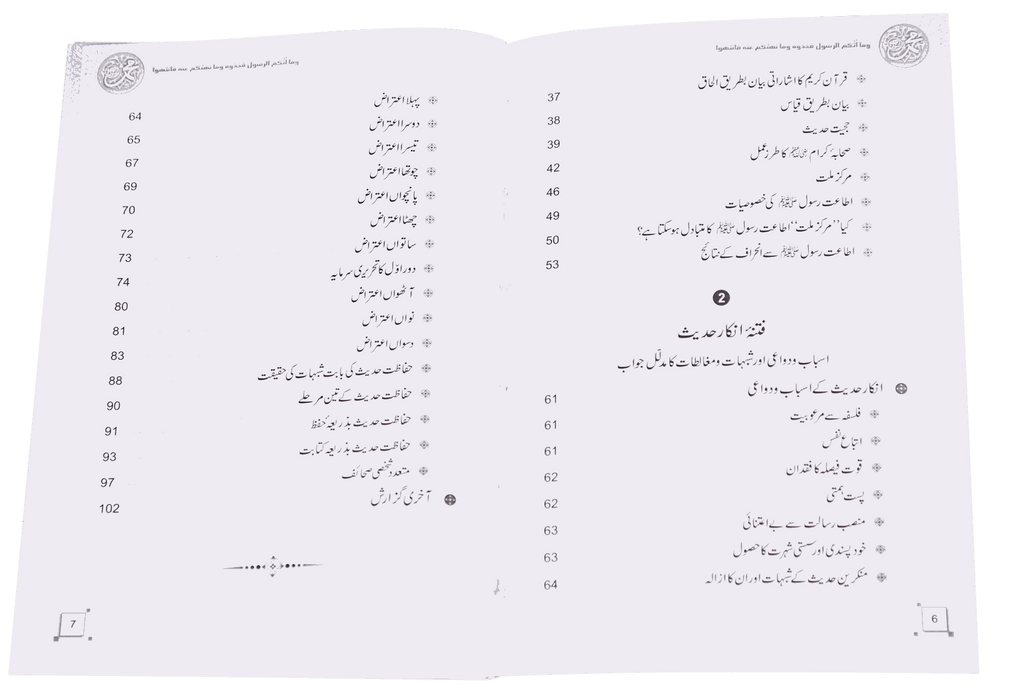 وما آتٰكم الرسول فخذوه وما نهٰكم عنه فانتهوا
قرآن کریم کا اشاراتی بیان بطریق الحاق 37
بیان بطریق قیاس 38
حجیت حدیث 39
صحابۂ کرام ﷺ کا طرز عمل 42
مرکز ملت 46
اطاعت رسول ﷺ کی خصوصیات 49
کیا ’’مرکز ملت‘‘ اطاعت رسول ﷺ کا متبادل ہوسکتا ہے؟ 50
اطاعت رسول ﷺ سے انحراف کے نتائج 53
2
فتنۂ انکار حدیث
اسباب و دواعی اور شبہات و مغالطات کا مدلّل جواب
انکار حدیث کے اسباب و دواعی 61
فلسفہ سے مرعوبیت 61
اتباع نفس 61
قوت فیصلہ کا فقدان 62
پست ہمتی 62
منصب رسالت سے بے اعتنائی 63
خود پسندی اور سستی شہرت کا حصول 63
منکرین حدیث کے شبہات اور ان کا ازالہ 64
6
وما آتٰكم الرسول فخذوه وما نهٰكم عنه فانتهوا
پہلا اعتراض 64
دوسرا اعتراض 65
تیسرا اعتراض 67
چوتھا اعتراض 69
پانچواں اعتراض 70
چھٹا اعتراض 72
ساتواں اعتراض 73
دور اوّل کا تحریری سرمایہ 74
آٹھواں اعتراض 80
نواں اعتراض 81
دسواں اعتراض 83
حفاظت حدیث کی بابت شبہات کی حقیقت 88
حفاظت حدیث کے تین مرحلے 90
حفاظت حدیث بذریعۂ حفظ 91
حفاظت حدیث بذریعۂ کتابت 93
متعدد شخصی صحائف 97
آخری گزارش 102
7